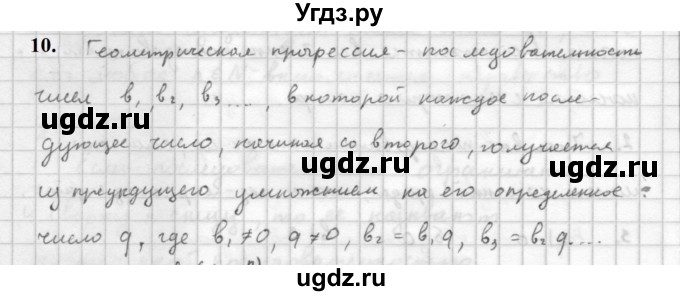 Угдз.ру
10. Геометрическая прогрессия - последовательность
чисел b₁, b₂, b₃ ...., в которой каждое после-
дующее число, начиная со второго, получается
из предыдущего умножением на его определенное
число q, где b₁ ≠ 0, q ≠ 0, b₂ = b₁ q, b₃ = b₂ q....
ugdz.ru ugdz.ru
ugdz.ru
ugdz.ru ugdz.ru
ugdz.ru
ugdz.ru ugdz.ru